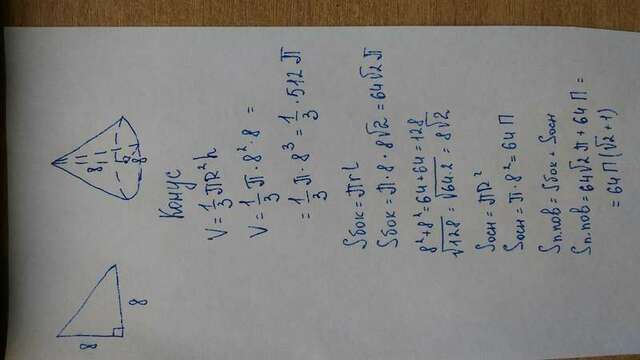 8
8
8
8
Конус
V = 1/3 πR²h
V = 1/3 π · 8² · 8 =
= 1/3 π · 8³ = 1/3 · 512 π
Sбок = πrl
Sбок = π · 8 · 8√2 = 64√2 π
8² + 8² = 64 + 64 = 128
√128 = √64·2 = 8√2
Sосн = πR²
Sосн = π · 8² = 64 π
Sп.пов = Sбок + Sосн
Sп.пов = 64√2 π + 64 π =
= 64 π (√2 + 1)